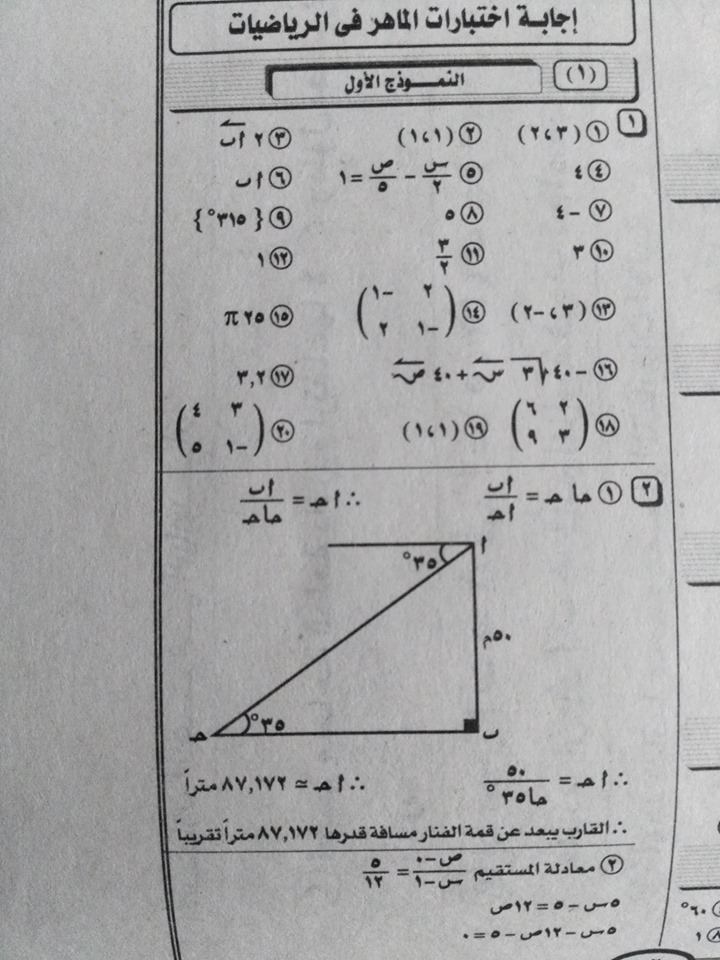 إجابة اختبارات الماهر فى الرياضيات
(١) النموذج الأول
١ ① (٣، ٢) ② (١، ١) ③ ٢ أب
④ ٤ ⑤ س/٢ − ص/٥ = ١ ⑥ أب
⑦ −٤ ⑧ ٥ ⑨ {٣١٥°}
⑩ ٣ ⑪ ٣/٢ ⑫ ١
⑬ (٣، −٢) ⑭ (٢ −١
−١ ٢) ⑮ ٢٥ π
⑯ −٤٠√٣ س + ٤٠ ص ⑰ ٣,٢
⑱ (٢ ٦
٣ ٩) ⑲ (١، ١) ⑳ (٣ ٤
−١ ٥)
٢ ① حا حـ = أب/أحـ ∴ أحـ = أب/حاحـ
أ
٣٥°
٥٠م
٣٥°
حـ ب
∴ أحـ = ٥٠/حا٣٥° ∴ أحـ ≃ ٨٧,١٧٢ متراً
∴ القارب يبعد عن قمة الفنار مسافة قدرها ٨٧,١٧٢ متراً تقريباً
② معادلة المستقيم ص−٠/س−١ = ٥/١٢
٥س − ٥ = ١٢ص
٥س − ١٢ص − ٥ = ٠
٦٠°
⑧ ١